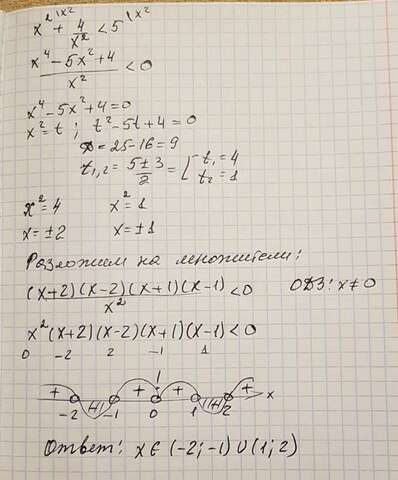 x² + 4/x² < 5
(x⁴ - 5x² + 4)/x² < 0
x⁴ - 5x² + 4 = 0
x² = t ; t² - 5t + 4 = 0
D = 25 - 16 = 9
t₁,₂ = (5 ± 3)/2 = [ t₁ = 4
t₂ = 1
x² = 4 x² = 1
x = ±2 x = ±1
Разложим на множители:
(x+2)(x-2)(x+1)(x-1)/x² < 0 ОДЗ: x ≠ 0
x²(x+2)(x-2)(x+1)(x-1) < 0
0 -2 2 -1 1
+ (-) + + (-) + x
-2 -1 0 1 2
Ответ: x ∈ (-2; -1) ∪ (1; 2)